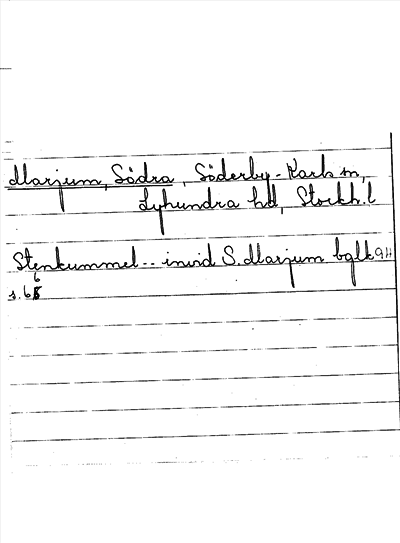 Marjum, Södra, Söderby-Karls sn,
Lyhundra hd, Stockh. l
Stenkummel -- invid S. Marjum bglk 9H
s. 66